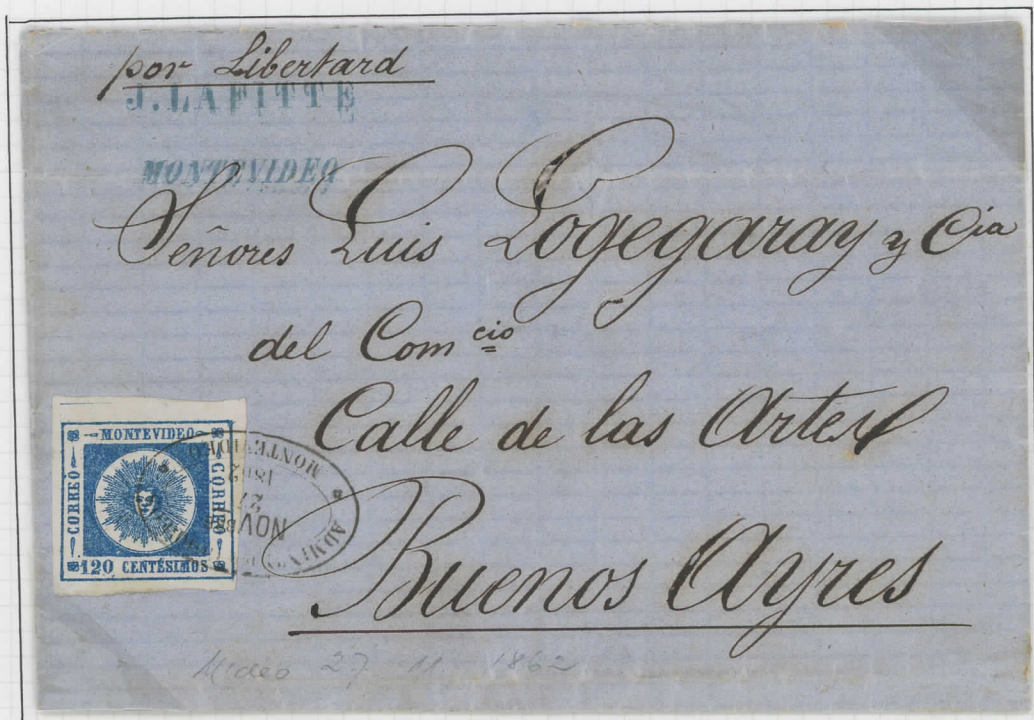 por Libertard
J. LAFITTE
MONTEVIDEO
Señores Luis Logegaray y Cia
del Com cio
Calle de las Artes
Buenos Ayres
MONTEVIDEO
CORREO
CORREO
120 CENTÉSIMOS
MONTEVIDEO
1862
27
NOVBRE
ADMON
Mdeo 27 11 1862